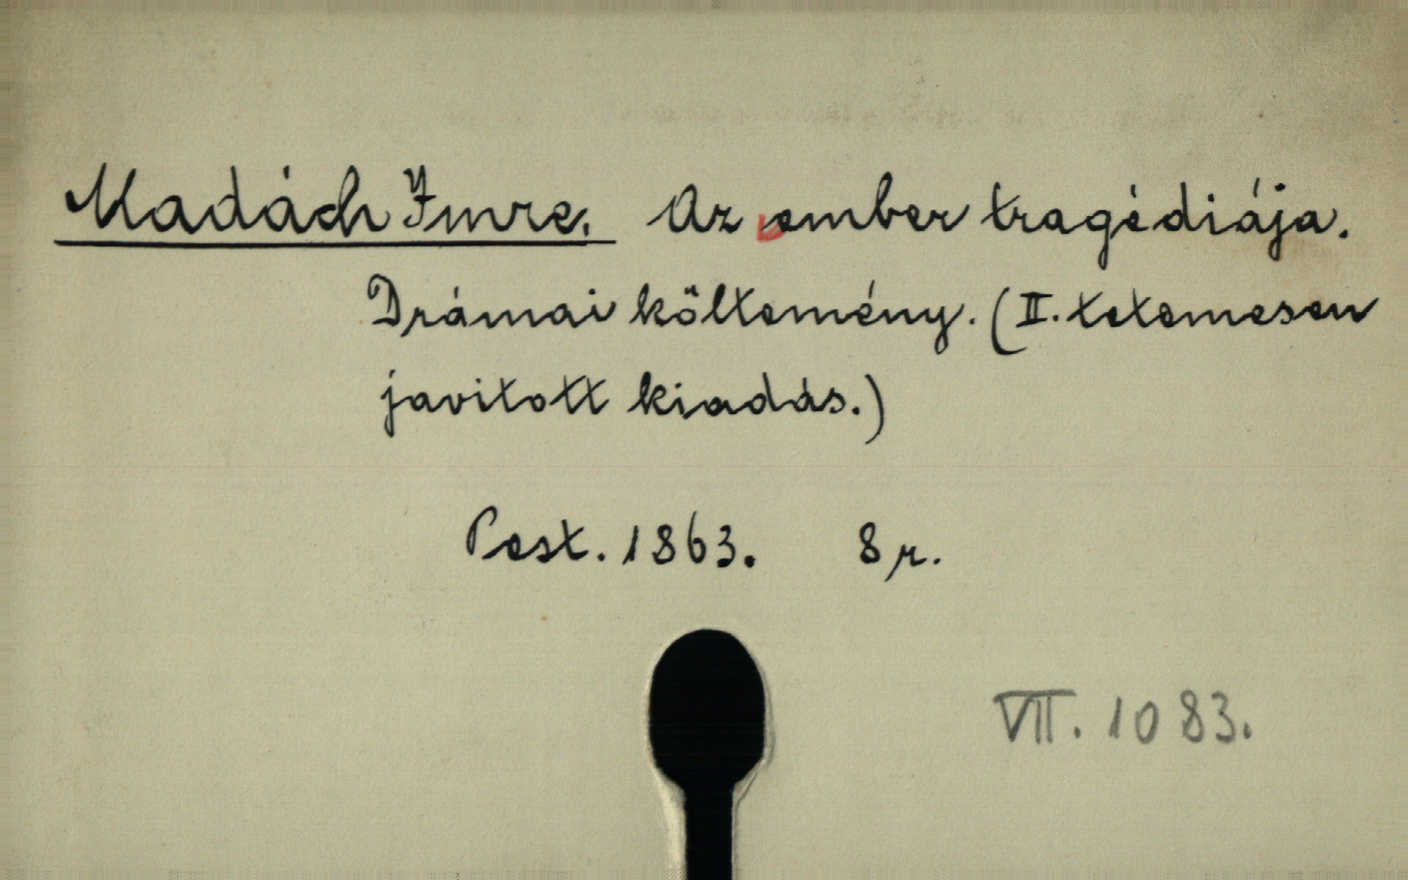 Madách Imre. Az ember tragédiája.
Drámai költemény. (II. tetemesen
javitott kiadás.)
Pest. 1863. 8 r.
VII. 1083.